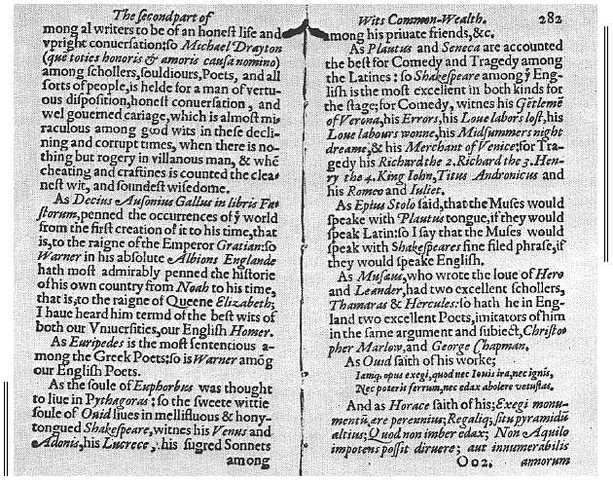 The second part of
mong al writers to be of an honest life and
vpright conuersation: so Michael Drayton
(què toties honoris & amoris causa nomino)
among schollers, souldiours, Poets, and all
sorts of people, is helde for a man of vertu-
ous disposition, honest conuersation, and
wel gouerned cariage, which is almost mi-
raculous among good wits in these decli-
ning and corrupt times, when there is no-
thing but rogery in villanous man, & whē
cheating and craftines is counted the clea-
nest wit, and soundest wisedome.
As Decius Ausonius Gallus in libris Fa-
storum, penned the occurrences of yͤ world
from the first creation of it to his time, that
is, to the raigne of the Emperor Gratian: so
Warner in his absolute Albions Englande
hath most admirably penned the historie
of his own country from Noah to his time,
that is, to the raigne of Queene Elizabeth;
I haue heard him termd of the best wits of
both our Vniuersities, our English Homer.
As Euripedes is the most sententious a-
mong the Greek Poets: so is Warner amōg
our English Poets.
As the soule of Euphorbus was thought
to liue in Pythagoras: so the sweete wittie
soule of Ouid liues in mellifluous & hony-
tongued Shakespeare, witnes his Venus and
Adonis, his Lucrece, his sugred Sonnets
among
Wits Common-Wealth. 282
among his priuate friends, &c.
As Plautus and Seneca are accounted
the best for Comedy and Tragedy among
the Latines: so Shakespeare among yͤ Eng-
lish is the most excellent in both kinds for
the stage; for Comedy, witnes his Gētlemē
of Verona, his Errors, his Loue labors lost, his
Loue labours wonne, his Midsummers night
dreame, & his Merchant of Venice: for Tra-
gedy his Richard the 2. Richard the 3. Hen-
ry the 4. King Iohn, Titus Andronicus and
his Romeo and Iuliet.
As Epius Stolo said, that the Muses would
speake with Plautus tongue, if they would
speak Latin: so I say that the Muses would
speak with Shakespeares fine filed phrase, if
they would speake English.
As Musæus, who wrote the loue of Hero
and Leander, had two excellent schollers,
Thamaras & Hercules: so hath he in Eng-
land two excellent Poets, imitators of him
in the same argument and subiect, Christo-
pher Marlow, and George Chapman.
As Ouid saith of his worke;
Iamq. opus exegi, quod nec Iouis ira, nec ignis,
Nec poterit ferrum, nec edax abolere vetustas.
And as Horace saith of his; Exegi monu-
mentū ære perennius; Regaliq; situ pyramidū
altius; Quod non imber edax; Non Aquilo
impotens possit diruere; aut innumerabilis
Oo2. annorum